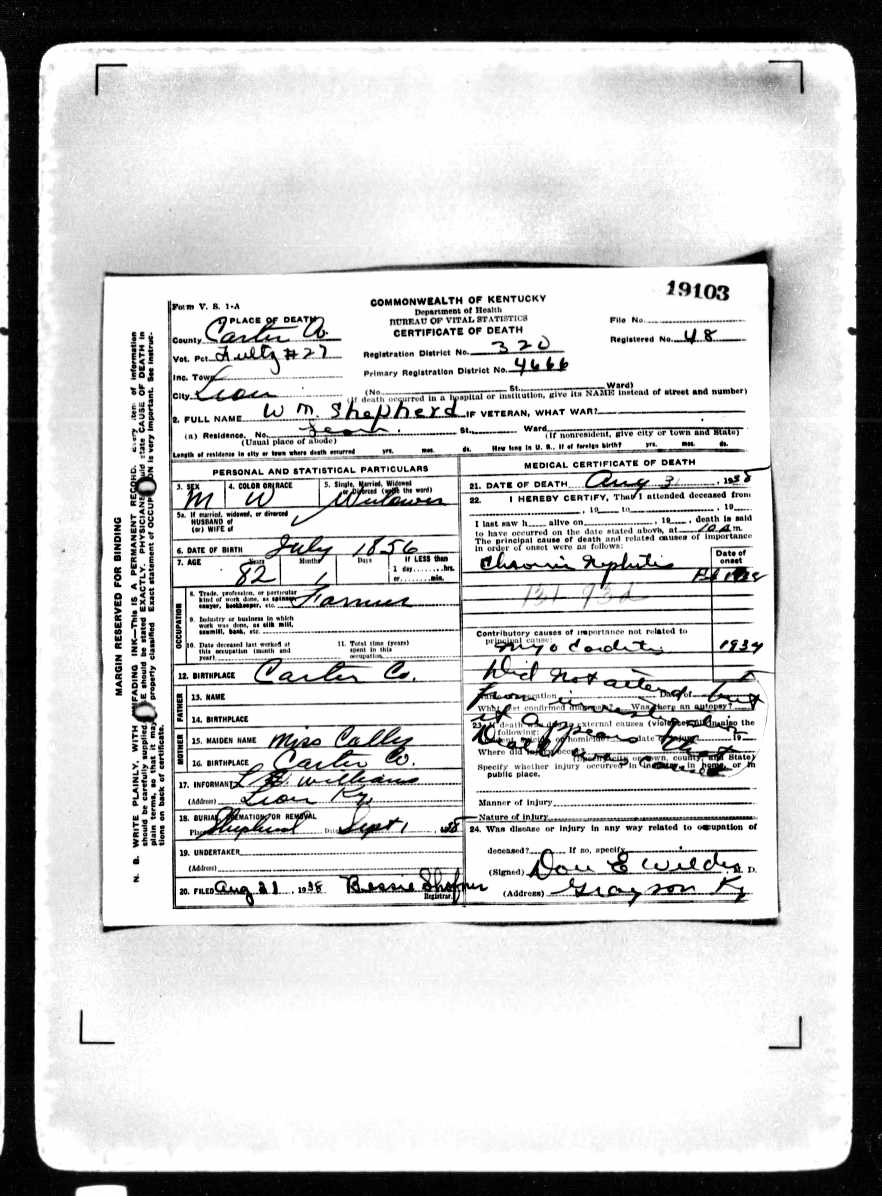 19103
Form V. S. 1-A
COMMONWEALTH OF KENTUCKY
Department of Health
BUREAU OF VITAL STATISTICS
CERTIFICATE OF DEATH
File No.
Registered No. 48
1. PLACE OF DEATH
County Carter Co.
Vot. Pct. Fultz #27
Inc. Town
City Leon
Registration District No. 320
Primary Registration District No. 4666
(No. St. Ward)
(If death occurred in a hospital or institution, give its NAME instead of street and number)
2. FULL NAME W M. Shepherd IF VETERAN, WHAT WAR?
(a) Residence, No. Leon. St. Ward
(Usual place of abode) (If nonresident, give city or town and State)
Length of residence in city or town where death occurred yrs. mos. ds. How long in U. S., if of foreign birth? yrs. mos. ds.
PERSONAL AND STATISTICAL PARTICULARS
3. SEX M
4. COLOR OR RACE W
5. Single, Married, Widowed or Divorced (write the word) Widower
5a. If married, widowed, or divorced
HUSBAND of
(or) WIFE of
6. DATE OF BIRTH July 1856
7. AGE Years 82 Months 1 Days If LESS than
1 day hrs.
or min.
OCCUPATION
8. Trade, profession, or particular
kind of work done, as spinner,
sawyer, bookkeeper, etc. Farmer
9. Industry or business in which
work was done, as silk mill,
sawmill, bank, etc.
10. Date deceased last worked at
this occupation (month and
year)
11. Total time (years)
spent in this
occupation
12. BIRTHPLACE Carter Co.
FATHER
13. NAME
14. BIRTHPLACE
MOTHER
15. MAIDEN NAME Miss Cally
16. BIRTHPLACE Carter Co.
17. INFORMANT Williams
(Address) Leon Ky.
18. BURIAL, CREMATION OR REMOVAL
Place Shepherd Date Sept 1, 1938
19. UNDERTAKER
(Address)
20. FILED Aug 31, 1938 Bessie
Registrar
MEDICAL CERTIFICATE OF DEATH
21. DATE OF DEATH Aug 31 1938
22. I HEREBY CERTIFY, That I attended deceased from
, 19 to , 19
I last saw h alive on , 19 , death is said
to have occurred on the date stated above, at 10 a m.
The principal cause of death and related causes of importance
in order of onset were as follows:
Date of onset
Chronic Nephritis
131 93d
Contributory causes of importance not related to
principal cause:
Myocarditis 1934
Did not attend but
from
it appears
Death
Name of operation Date of
What test confirmed diagnosis? Was there an autopsy?
23. If death was due to external causes (violence) fill in also the
following:
Where did injury occur?
(Specify city or town, county, and State)
Specify whether injury occurred in industry, in home, or in
public place.
Manner of injury
Nature of injury
24. Was disease or injury in any way related to occupation of
deceased? If no, specify
(Signed) Don E Wilder M. D.
(Address) Grayson Ky
MARGIN RESERVED FOR BINDING
N. B. WRITE PLAINLY, WITH UNFADING INK—This is A PERMANENT RECORD. Every item of information
should be carefully supplied. AGE should be stated EXACTLY. PHYSICIANS should state CAUSE OF DEATH in
plain terms, so that it may be properly classified. Exact statement of OCCUPATION is very important. See instruc-
tions on back of certificate.